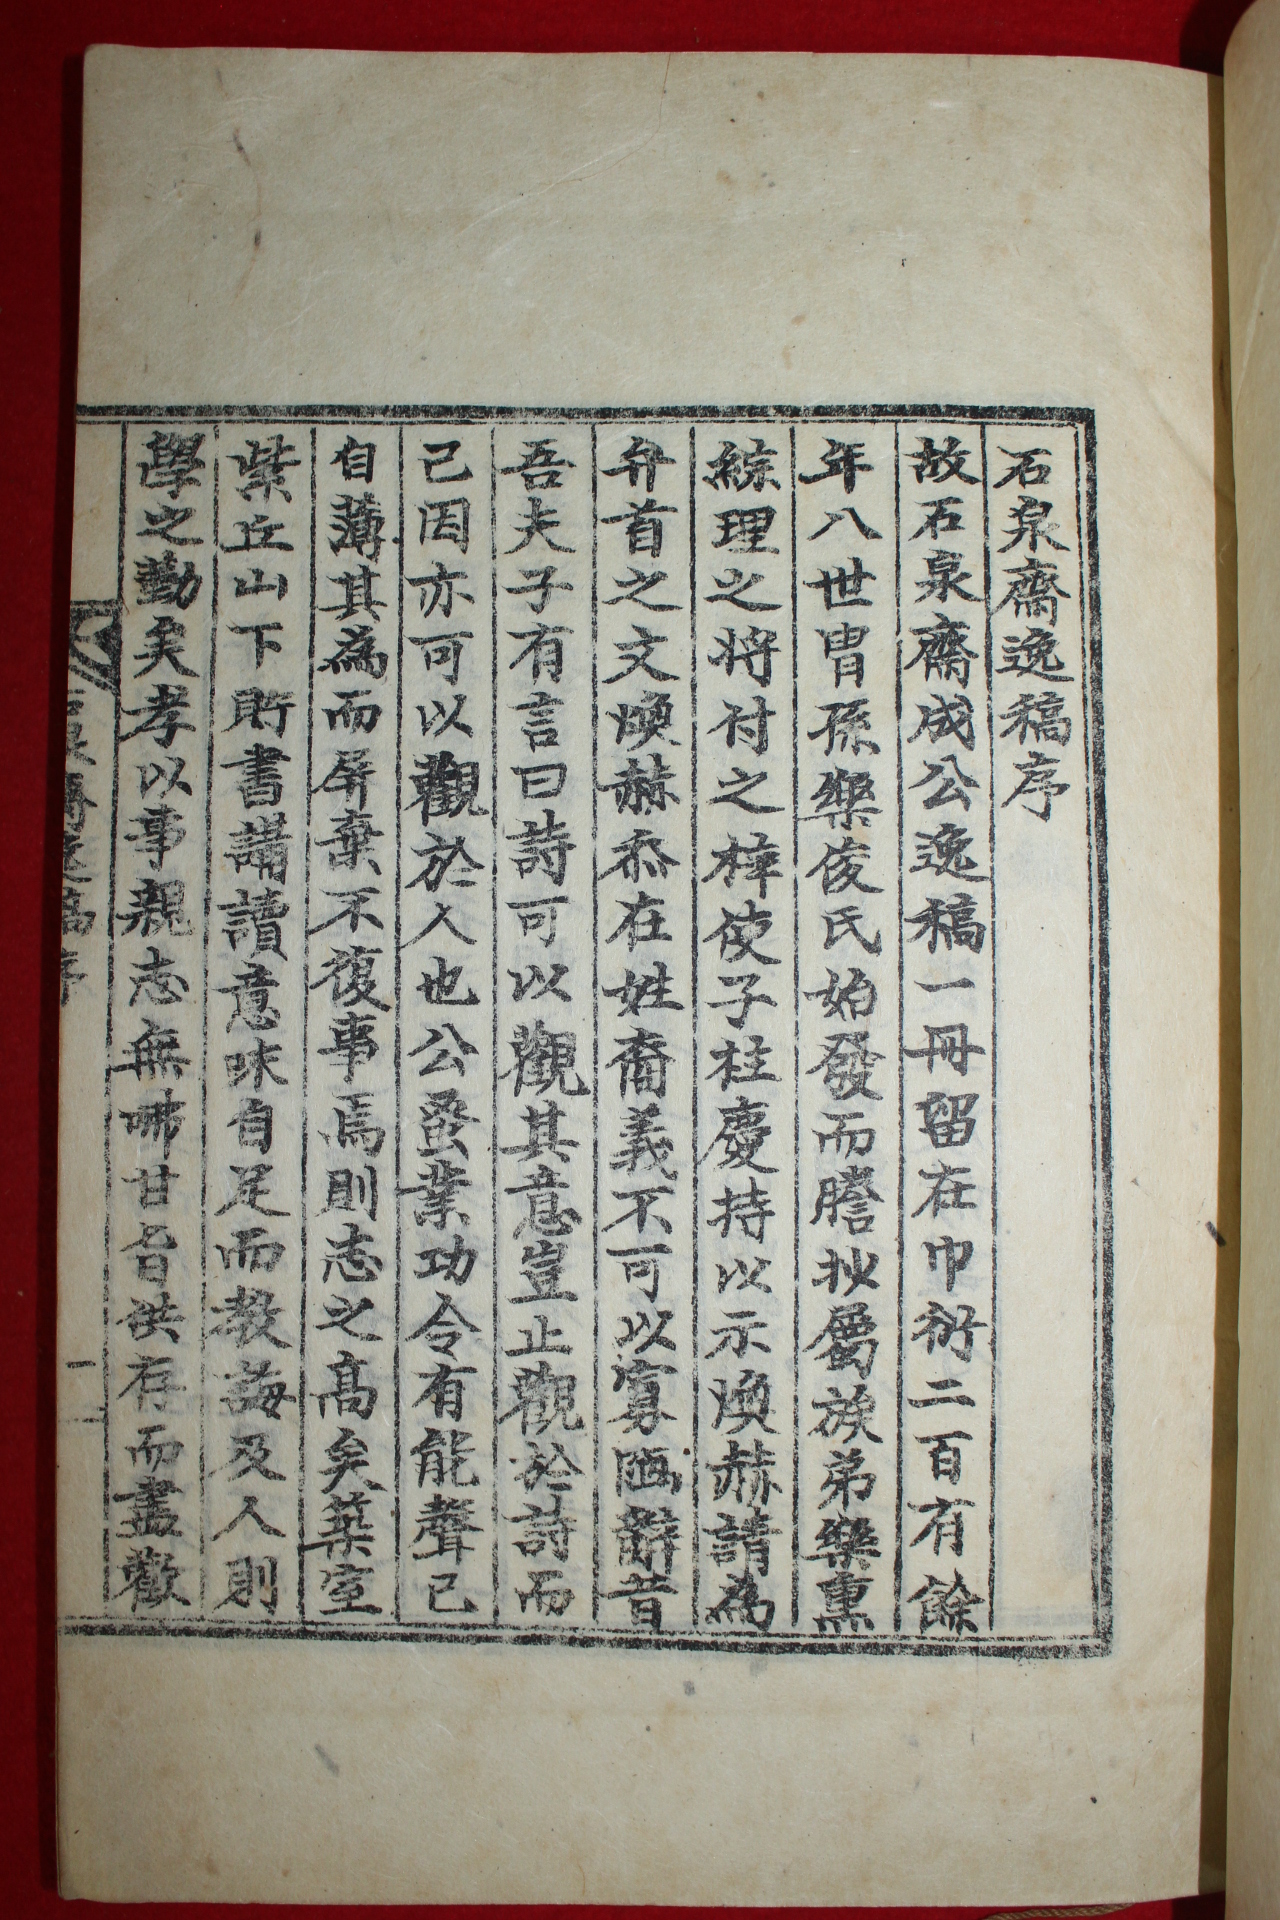 石泉齋逸稿序
故石泉齋成公逸稿一冊留在巾衍二百有餘
年八世胄孫樂俊氏始發而謄抄屬族弟樂熏
綜理之將付之梓使子柱慶持以示煥赫請為
弁首之文煥赫忝在姓裔義不可以寡陋辭昔
吾夫子有言曰詩可以觀其意豈止觀於詩而
己因亦可以觀於人也公蚤業功令有能聲已
自薄其為而屏棄不復事焉則志之高矣築室
紫丘山下貯書講讀意味自足而教誨及人則
學之勤矣孝以事親志無咈甘旨供存而盡歡
石泉齋逸稿序
一